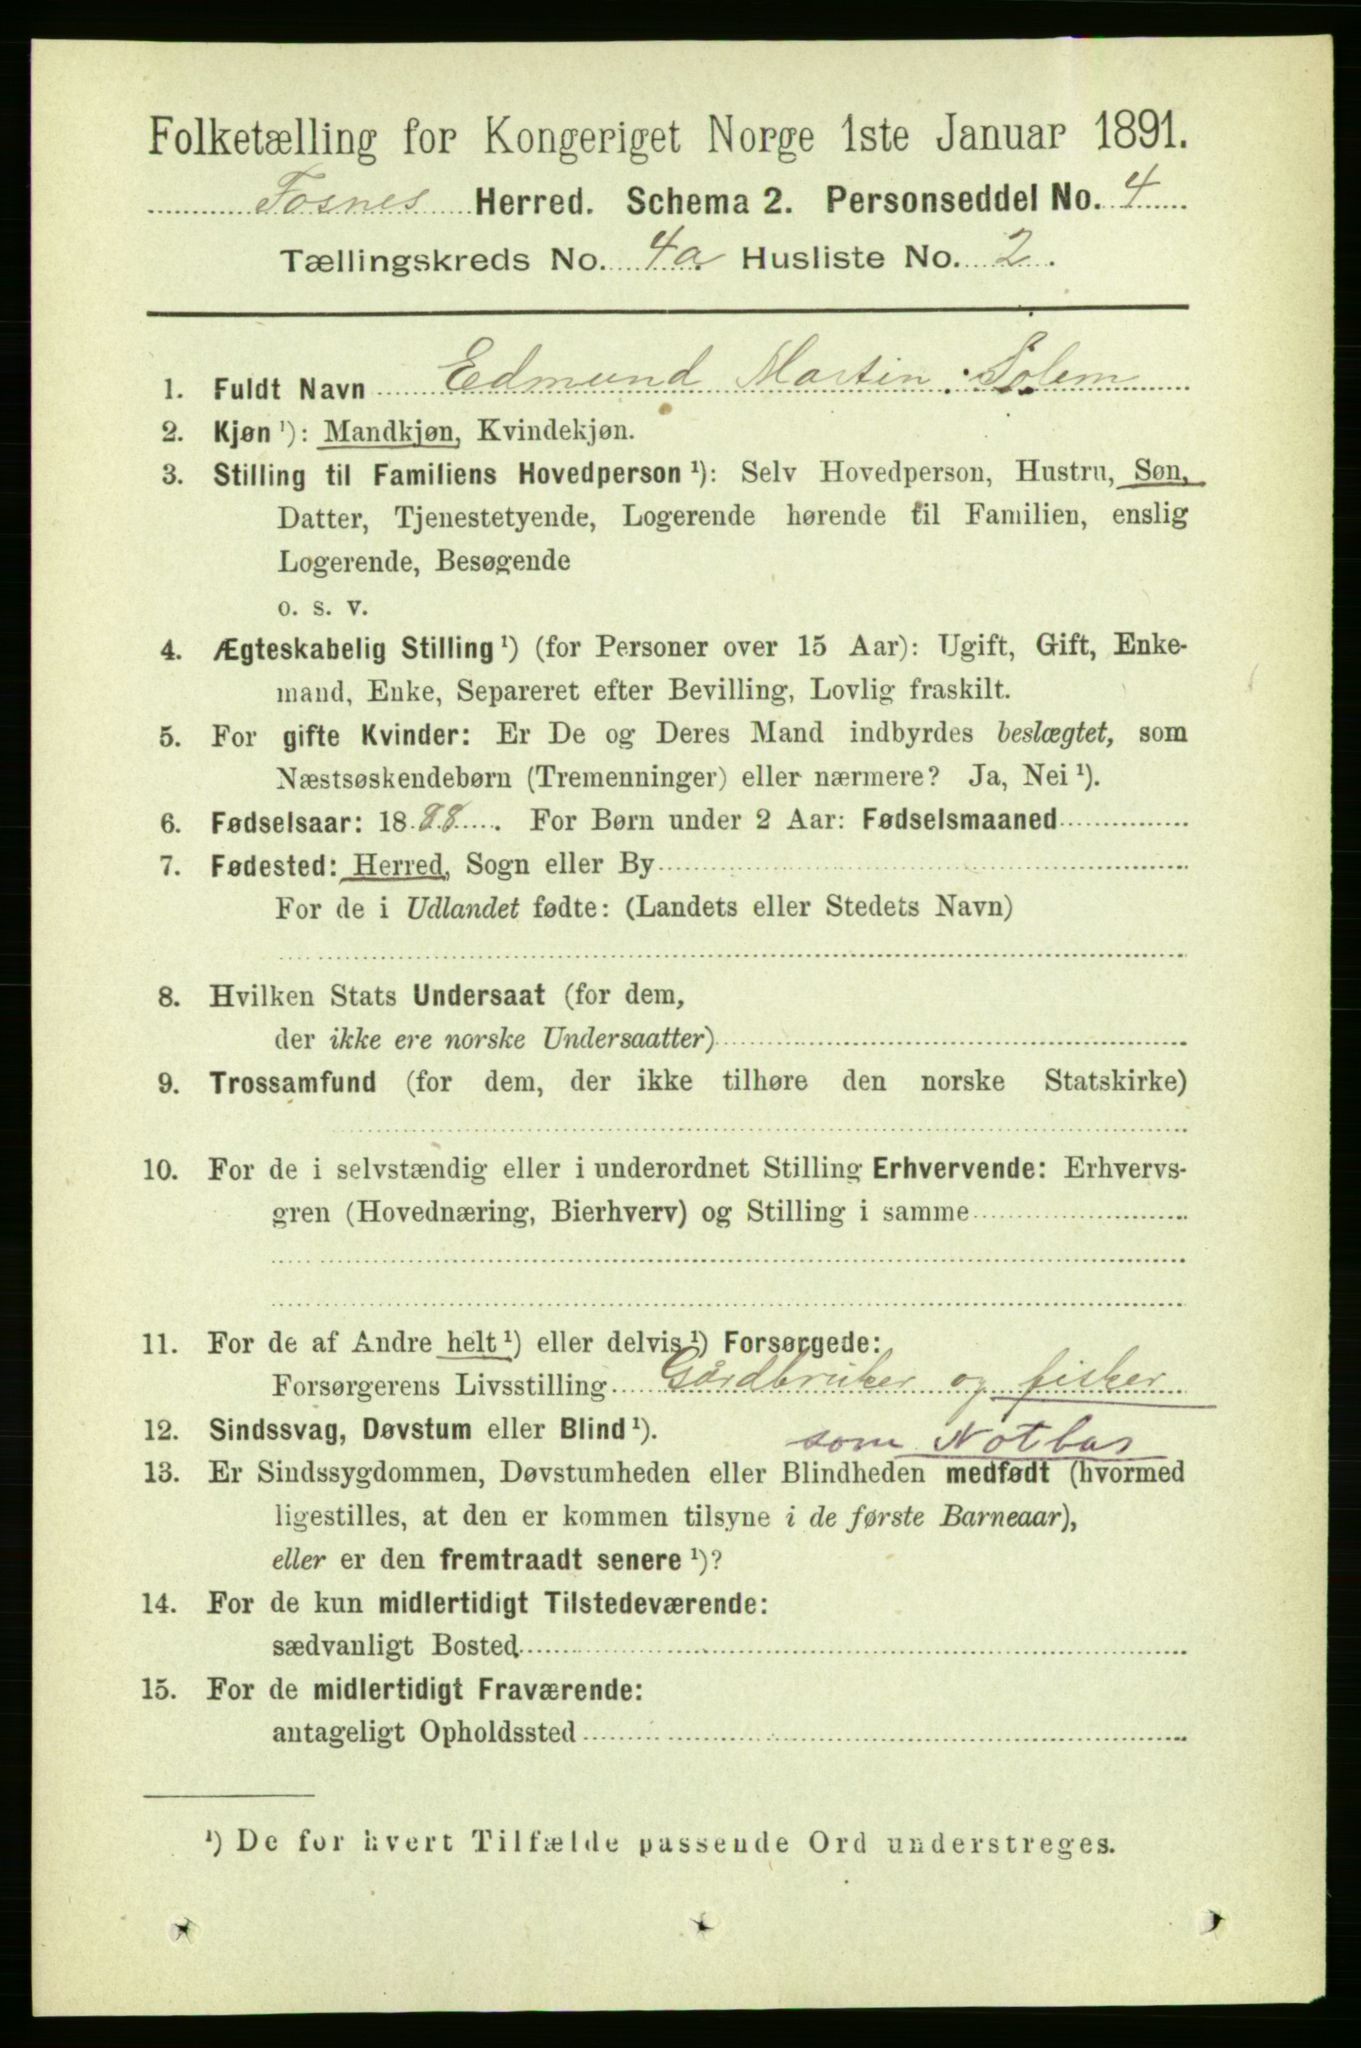 Folketælling for Kongeriget Norge 1ste Januar 1891.
Fosnes Herred. Schema 2. Personseddel No. 4
Tællingskreds No. 4a Husliste No. 2.
1. Fuldt Navn Edmund Martin Solem
2. Kjøn ¹): Mandkjøn, Kvindekjøn.
3. Stilling til Familiens Hovedperson ¹): Selv Hovedperson, Hustru, Søn,
Datter, Tjenestetyende, Logerende hørende til Familien, enslig
Logerende, Besøgende
o. s. v.
4. Ægteskabelig Stilling ¹) (for Personer over 15 Aar): Ugift, Gift, Enke-
mand, Enke, Separeret efter Bevilling, Lovlig fraskilt.
5. For gifte Kvinder: Er De og Deres Mand indbyrdes beslægtet, som
Næstsøskendebørn (Tremenninger) eller nærmere? Ja, Nei ¹).
6. Fødselsaar: 1888. For Børn under 2 Aar: Fødselsmaaned
7. Fødested: Herred, Sogn eller By
For de i Udlandet fødte: (Landets eller Stedets Navn)
8. Hvilken Stats Undersaat (for dem,
der ikke ere norske Undersaatter)
9. Trossamfund (for dem, der ikke tilhøre den norske Statskirke)
10. For de i selvstændig eller i underordnet Stilling Erhvervende: Erhvervs-
gren (Hovednæring, Bierhverv) og Stilling i samme
11. For de af Andre helt ¹) eller delvis ¹) Forsørgede:
Forsørgerens Livsstilling Gårdbruker og fisker
12. Sindssvag, Døvstum eller Blind ¹).
som Notbas
13. Er Sindssygdommen, Døvstumheden eller Blindheden medfødt (hvormed
ligestilles, at den er kommen tilsyne i de første Barneaar),
eller er den fremtraadt senere ¹)?
14. For de kun midlertidigt Tilstedeværende:
sædvanligt Bosted
15. For de midlertidigt Fraværende:
antageligt Opholdssted
¹) De for hvert Tilfælde passende Ord understreges.